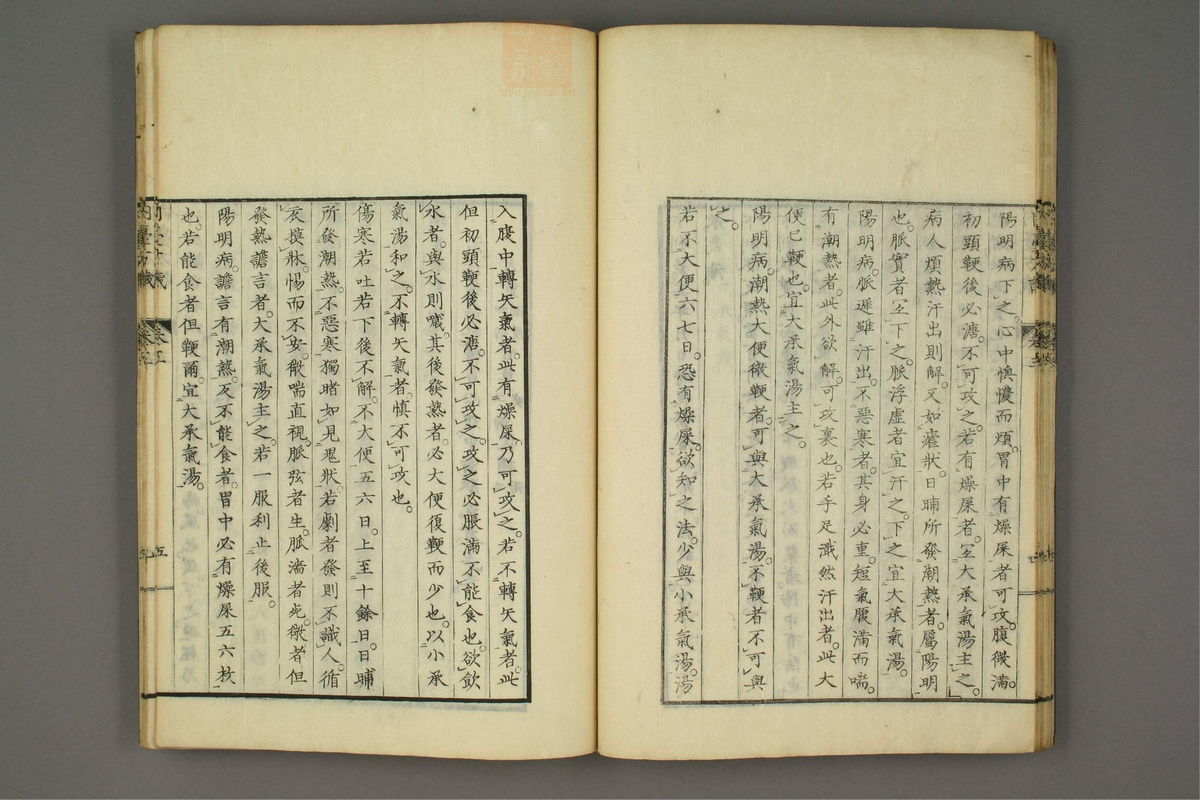 陽明病下之心中懊憹而煩胃中有燥屎者可攻腹微滿
初頭鞕後必溏不可攻之若有燥屎者宜大承氣湯主之
病人煩熱汗出則解又如瘧狀日晡所發潮熱者屬陽明
也脈實者宜下之脈浮虛者宜汗之下之宜大承氣湯
陽明病脈遲雖汗出不惡寒者其身必重短氣腹滿而喘
有潮熱者此外欲解可攻裏也若手足濈然汗出者此大
便已鞕也宜大承氣湯主之
陽明病潮熱大便微鞕者可與大承氣湯不鞕者不可與
之
若不大便六七日恐有燥屎欲知之法少與小承氣湯湯
入腹中轉矢氣者此有燥屎乃可攻之若不轉矢氣者此
但初頭鞕後必溏不可攻之攻之必脹滿不能食也欲飲
水者與水則噦其後發熱者必大便復鞕而少也以小承
氣湯和之不轉矢氣者慎不可攻也
傷寒若吐若下後不解不大便五六日上至十餘日日晡
所發潮熱不惡寒獨睹如見鬼狀若劇者發則不識人循
衣摸牀惕而不安微喘直視脈弦者生脈濇者死微者但
發熱譫言者大承氣湯主之若一服利止後服
陽明病譫言有潮熱反不能食者胃中必有燥屎五六枚
也若能食者但鞕爾宜大承氣湯